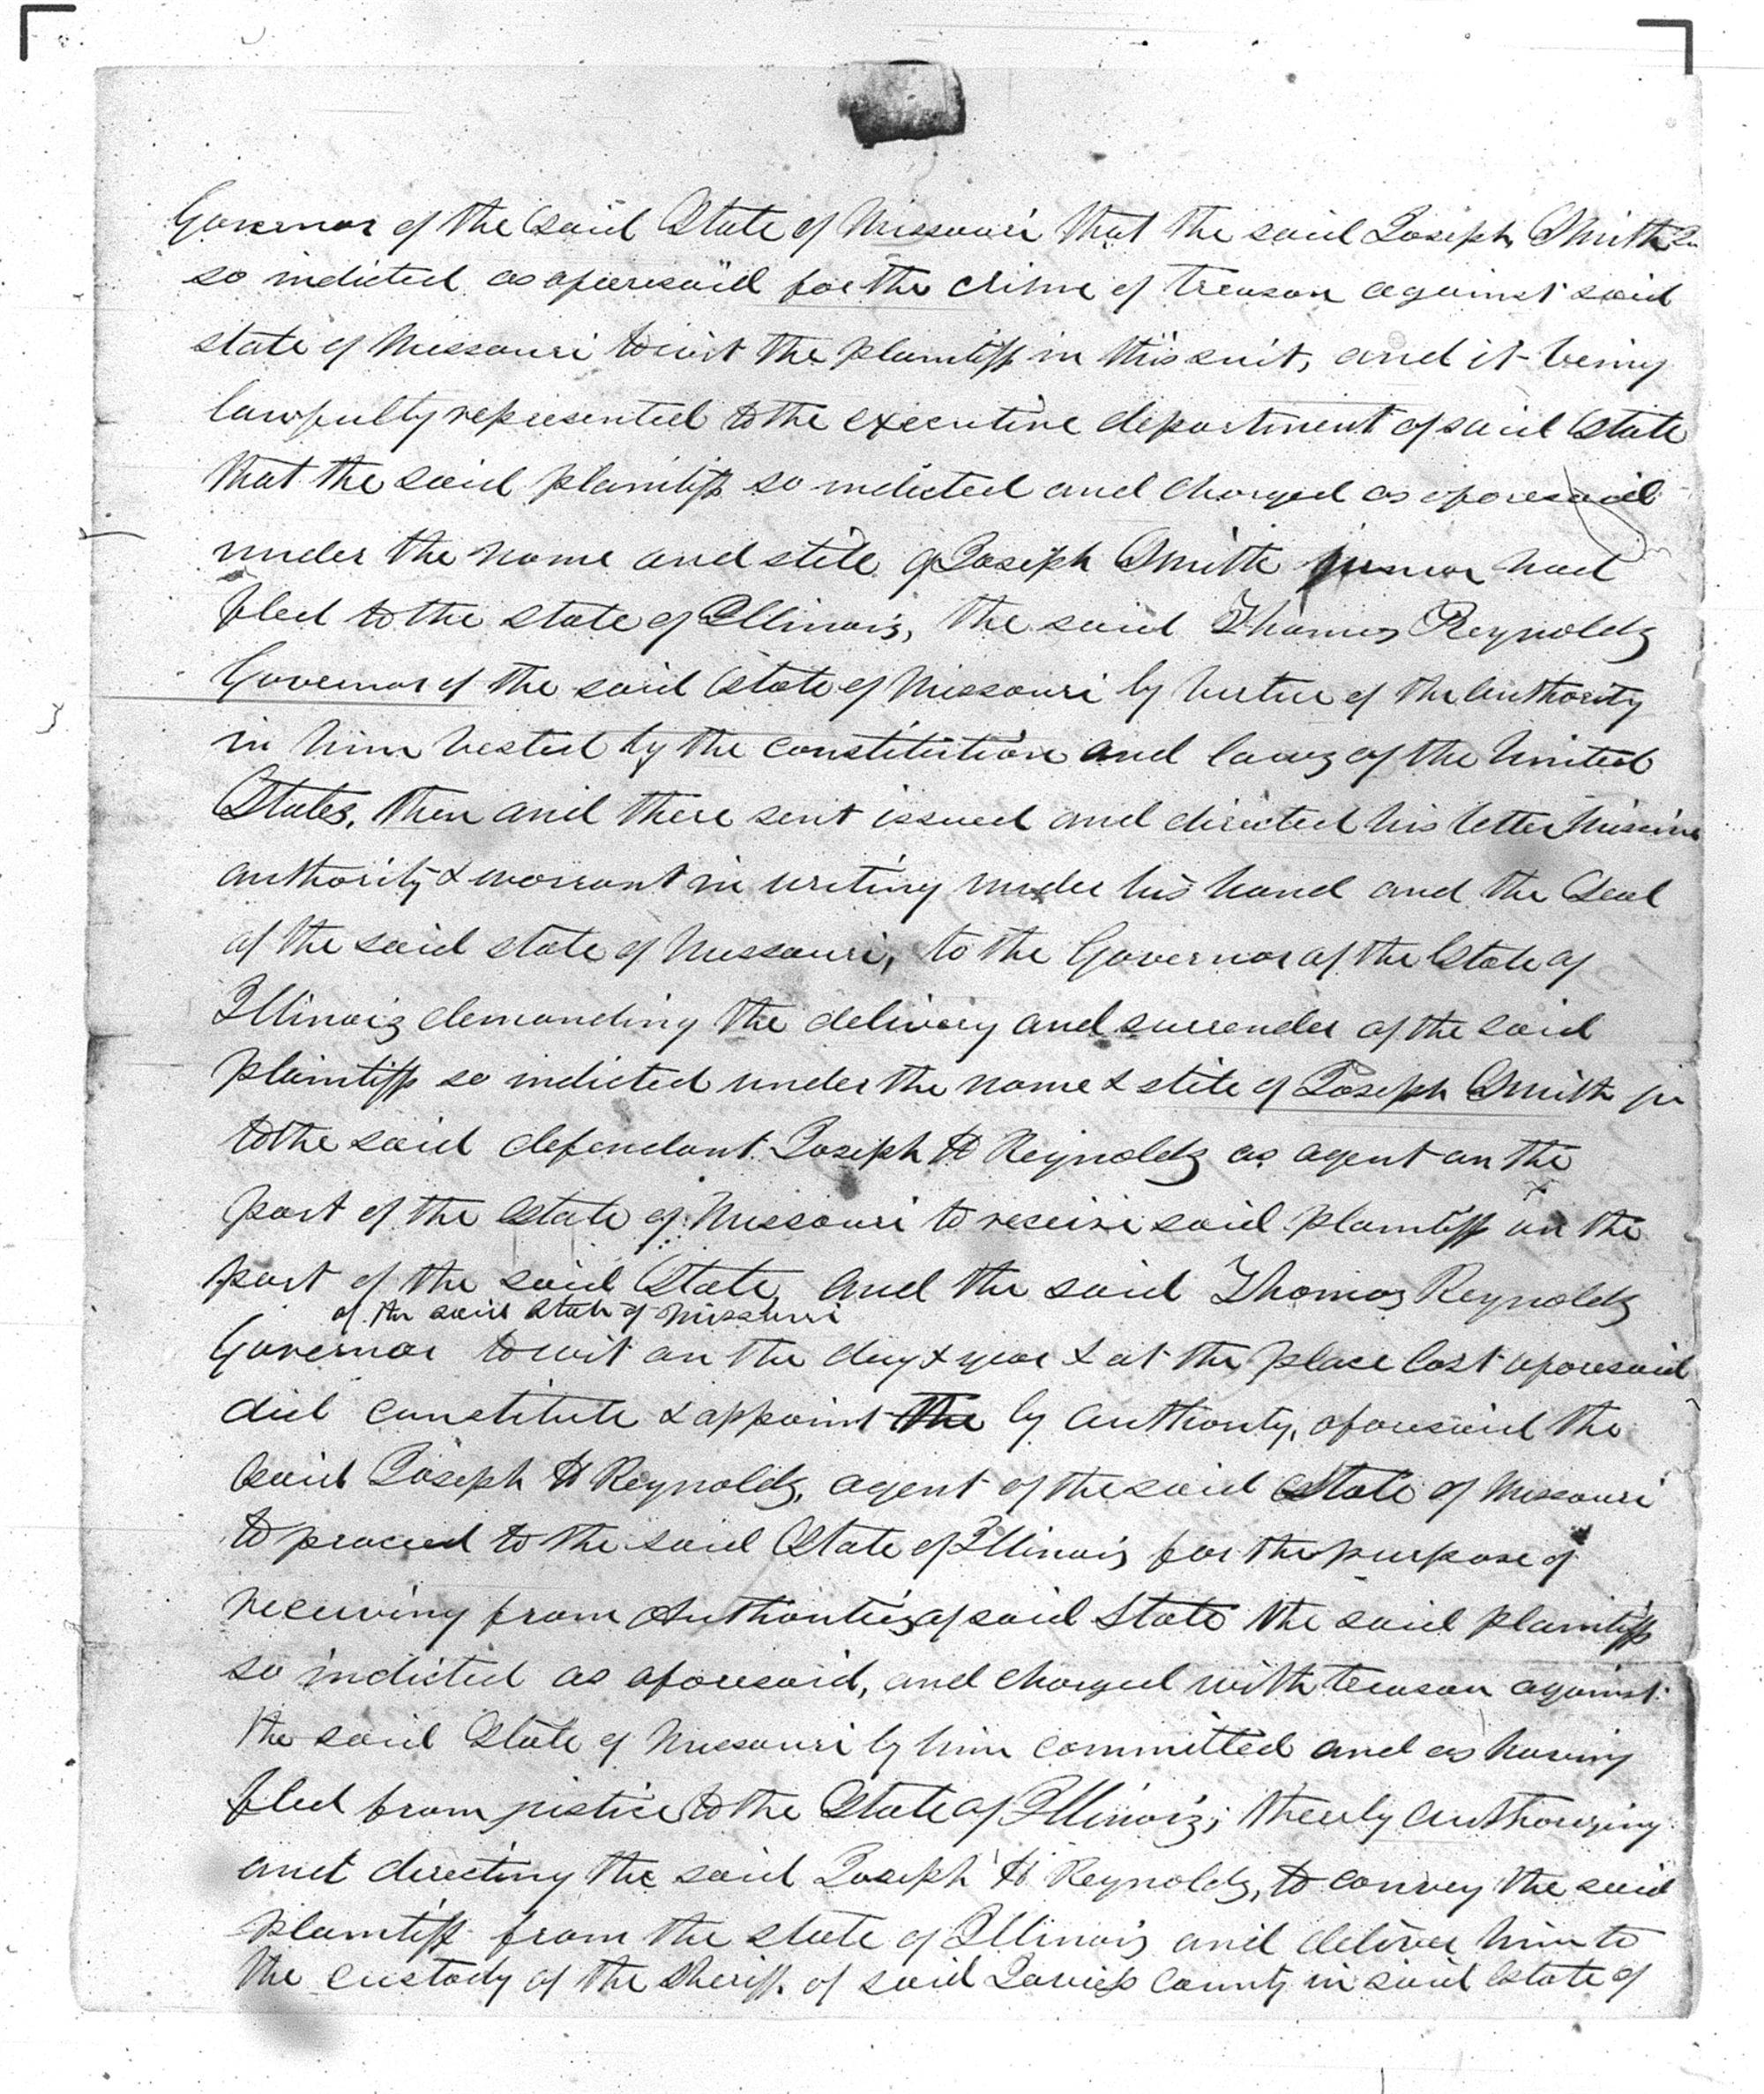 Governor of the said State of Missouri that the said Joseph Smith Jr
so indicted as aforesaid for the crime of treason against said
state of Missouri towit the plaintiff in this suit, and it being
lawfully represented to the executive department of said State
that the said plaintiff so indicted and charged as aforesaid
under the name and stile of Joseph Smith junior had
fled to the state of Illinois, the said Thomas Reynolds
Governor of the said State of Missouri by virtue of the authority
in him vested by the constitution and laws of the United
States, then and there sent issued and directed his letter missive
authority & warrant in writing under his hand and the Seal
of the said state of Missouri, to the Governor of the State of
Illinois demanding the delivery and surrender of the said
plaintiff so indicted under the name & stile of Joseph Smith jr
to the said defendant Joseph H Reynolds as agent on the
part of the State of Missouri to receive said plaintiff on the
part of the said State, and the said Thomas Reynolds
of the said State of Missouri
Governor towit on the day & year & at the place last aforesaid
did constitute & appoint the by authority, aforesaid the
said Joseph H Reynolds, agent of the said State of Missouri
to proceed to the said State of Illinois for the purpose of
receiving from Authorities of said State the said plaintiff
so indicted as aforesaid, and charged with treason against
the said State of Missouri by him committed and as having
fled from justice to the State of Illinois; thereby authorizing
and directing the said Joseph H Reynolds, to convey the said
plaintiff from the state of Illinois and deliver him to
the custody of the Sheriff of said Daviess County in said State of